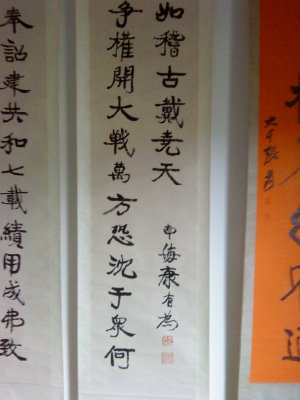 大千張爰
如稽古戴堯天
南海康有為
爭權開大戰萬方恐沈于衆何
奉詔建共和七載績用成弗致